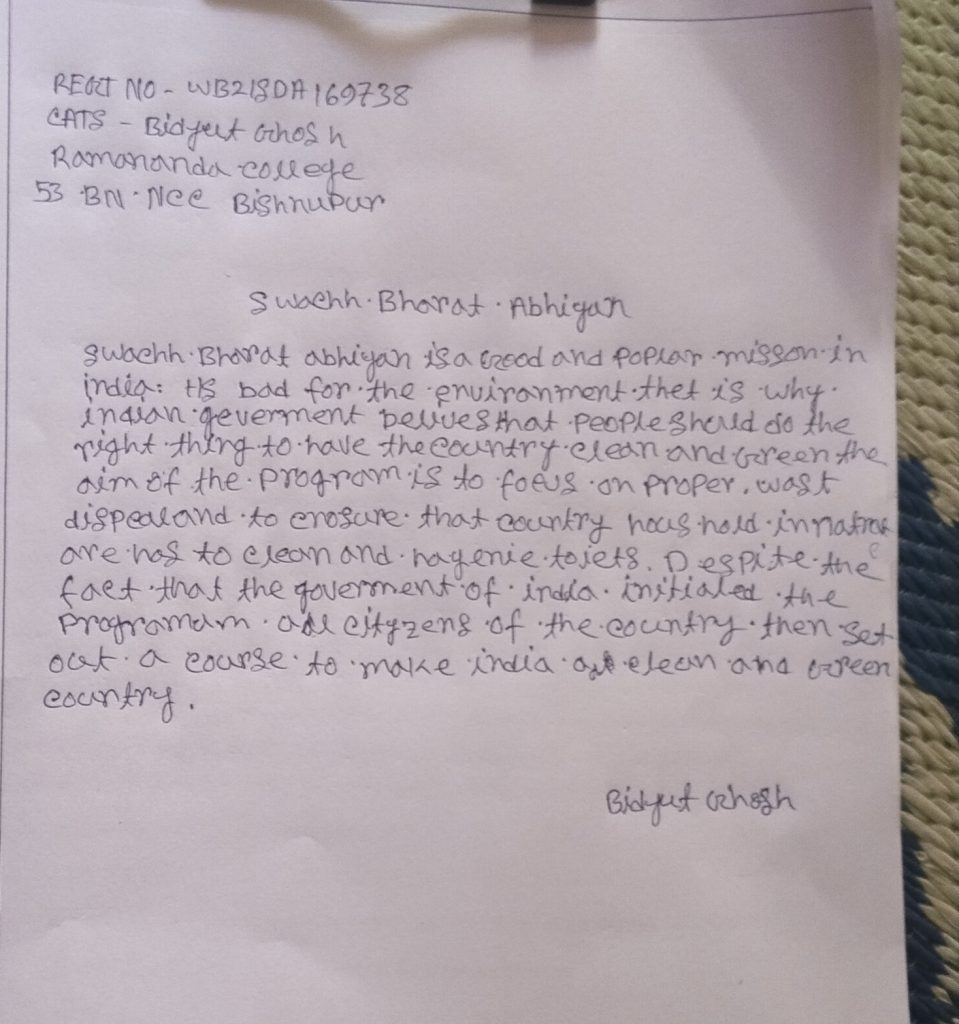 REGT NO - WB21SDA169738
CATS - Bidyut Ghosh
Ramananda college
53 BN. Ncc Bishnupur
Swachh. Bharat. Abhigan
Swachh. Bharat abhigan is a Good and Poplar misson in
india: its bad for the environment thet is why.
indian geverment belives that People should do the
right thing to have the country clean and Green the
aim of the Program is to focus on Proper. wast
dispeal and to erosure that country hous hold in
are has to clean and hagenie toiets. Despite the
fact that the goverment of india. initialed the
Programam all cityzens of the country then set
out a course to make india clean and Green
country.
Bidyut Ghosh